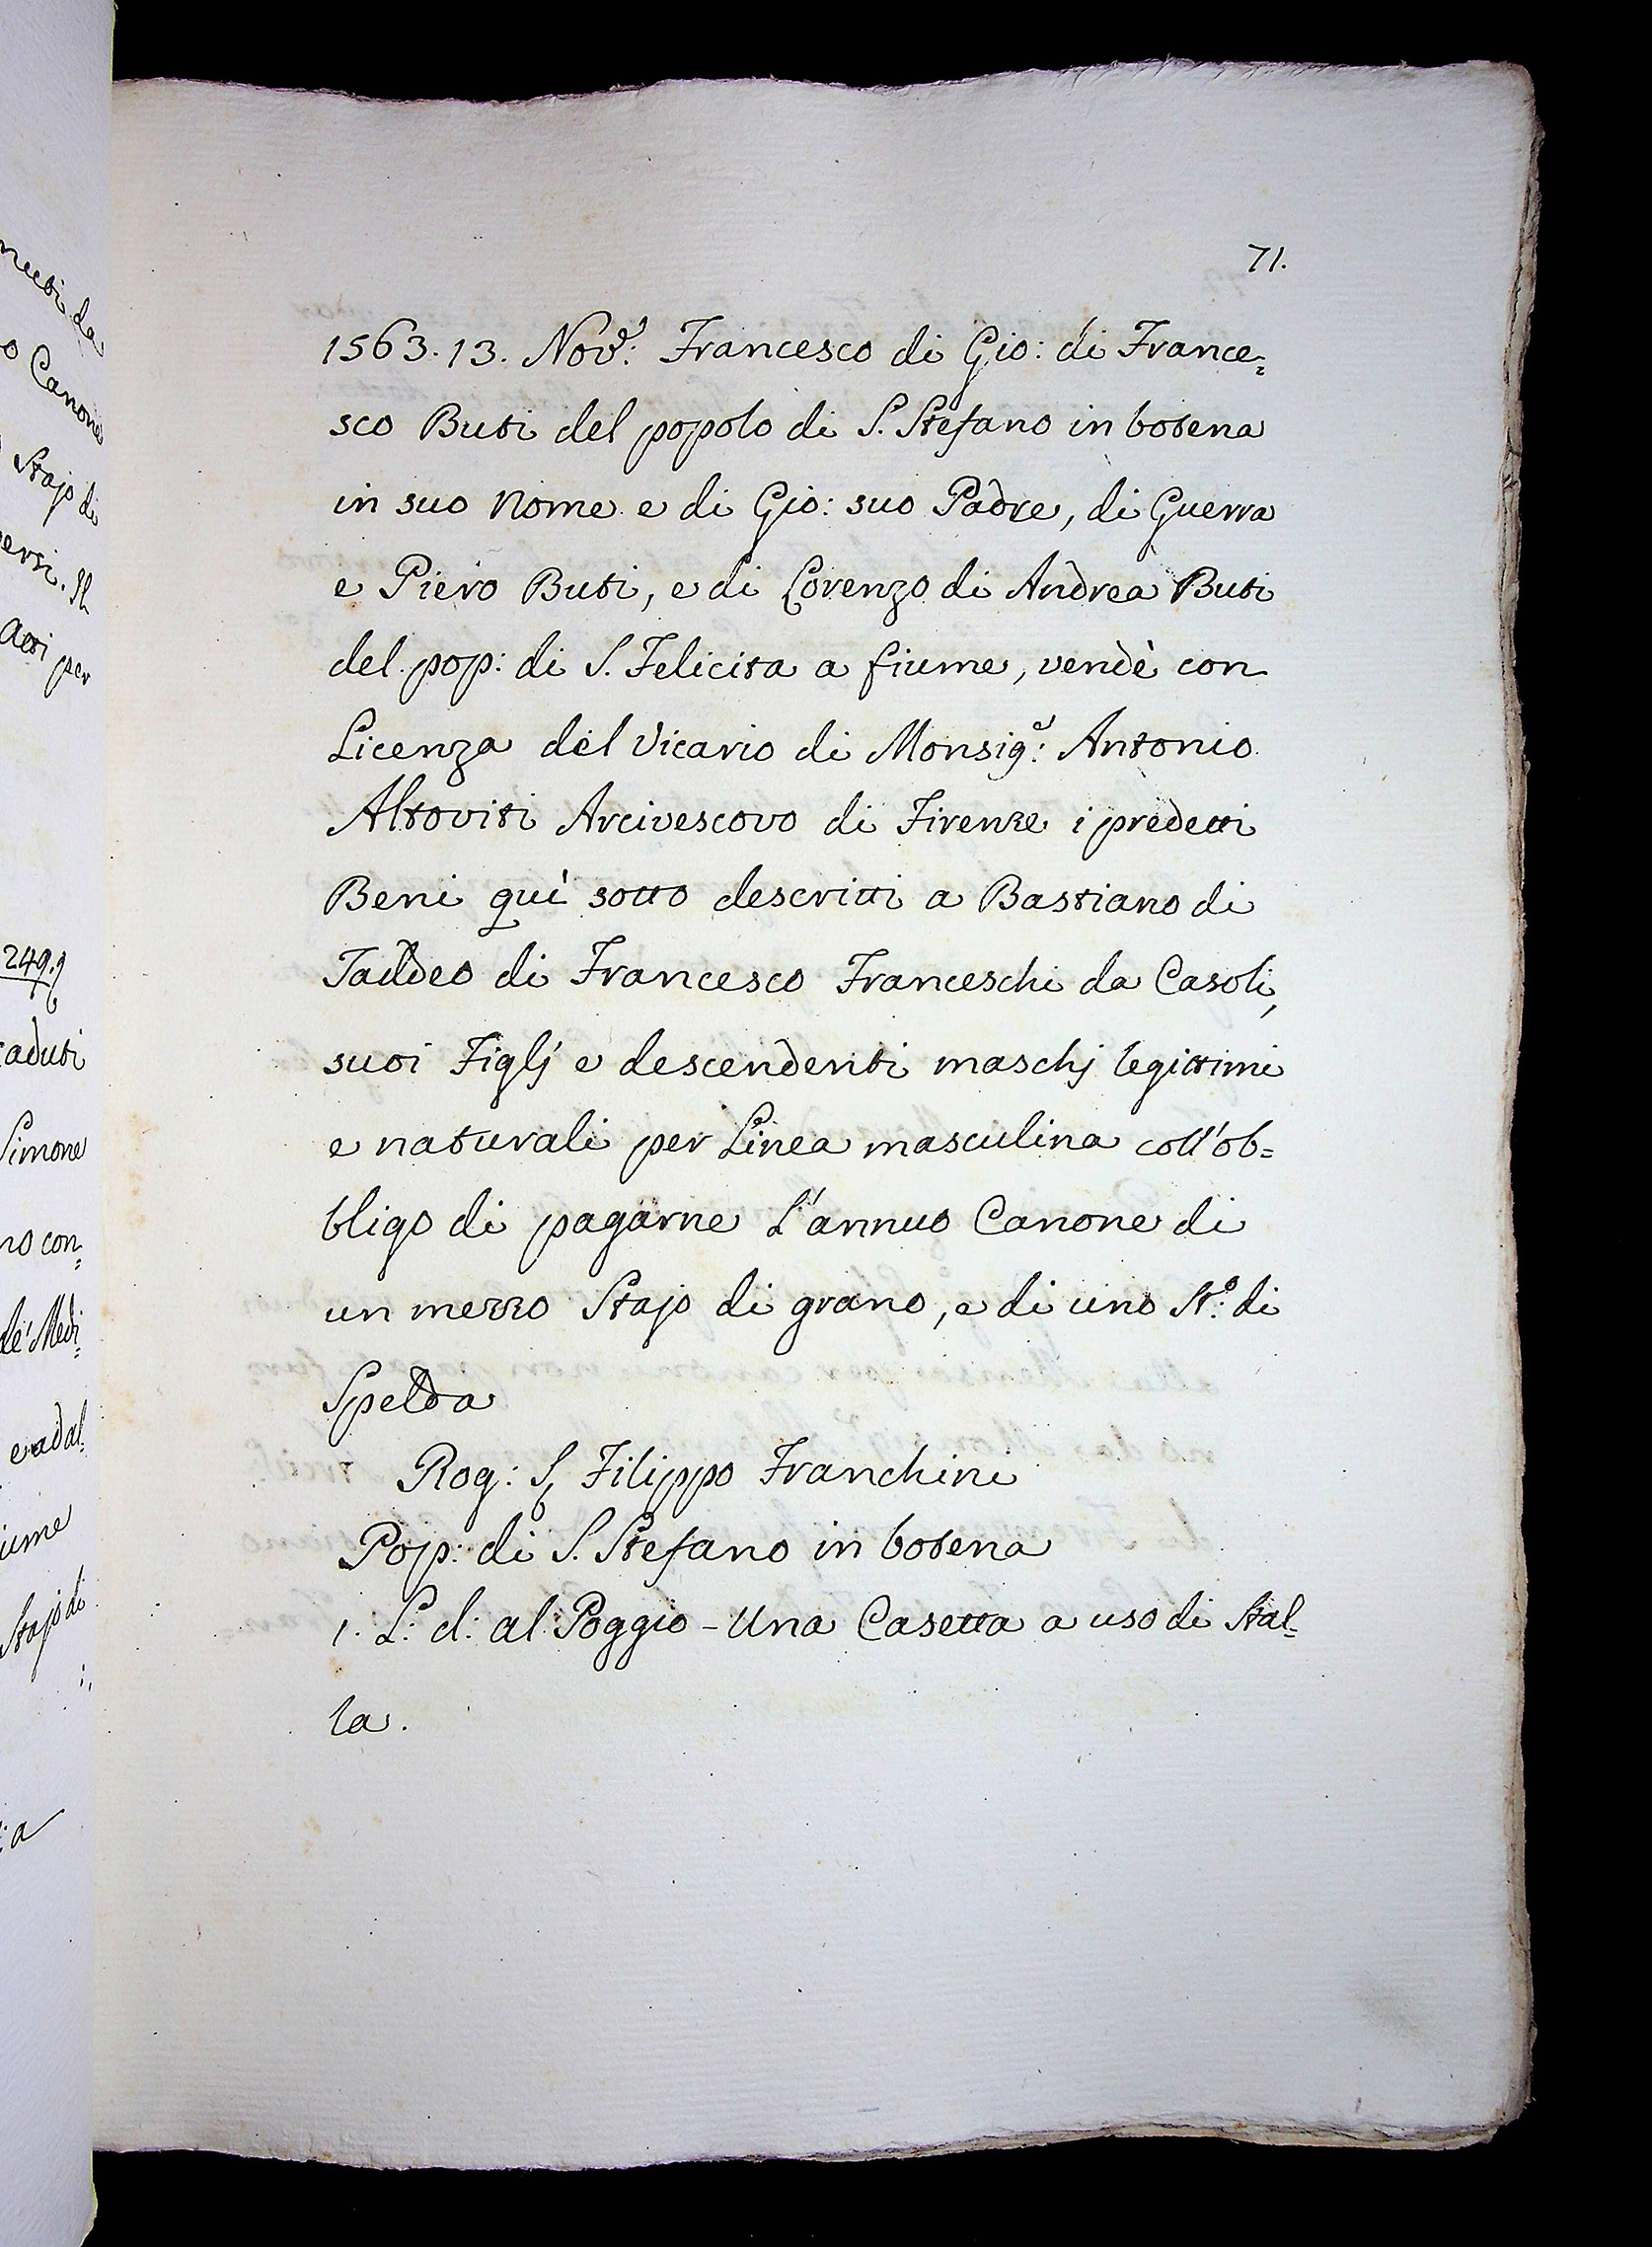 71.
1563. 13. Nov.e: Francesco di Gio: di France=
sco Buti del popolo di S. Stefano in botena
in suo Nome e di Gio: suo Padre, di Guerra
e Piero Buti, e di Lorenzo di Andrea Buti
del pop: di S. Felicita a fiume, vendè con
Licenza del Vicario di Monsig.e: Antonio
Altoviti Arcivescovo di Firenze i predetti
Beni quì sotto descritti a Bastiano di
Taddeo di Francesco Franceschi da Casoli,
suoi Figlj e descendenti maschj legittimi
e naturali per Linea masculina coll'ob=
bligo di pagarne L'annuo Canone di
un mezzo Stajo di grano, e di uno St.o: di
Spelda
Rog: S. Filippo Franchini
Pop: di S. Stefano in botena
1. L: d: al Poggio - Una Casetta a uso di Stal=
la.
da
o Canone
Stajo di
ersi. Il
Atti per
249.
caduti
Simone
no con=
de' Medi=
e ad al=
iume
Stajo di